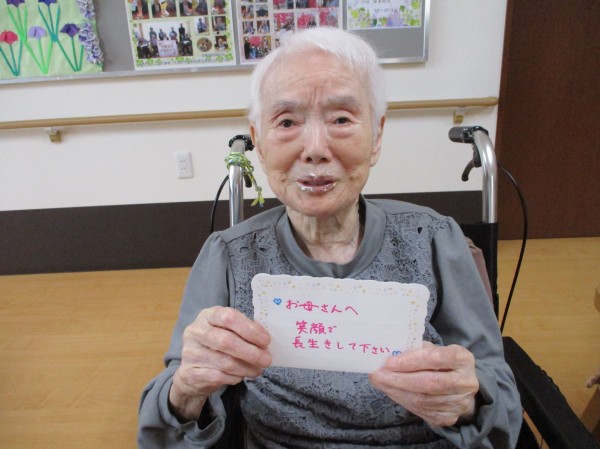 お母さんへ
笑顔で
長生きして下さい